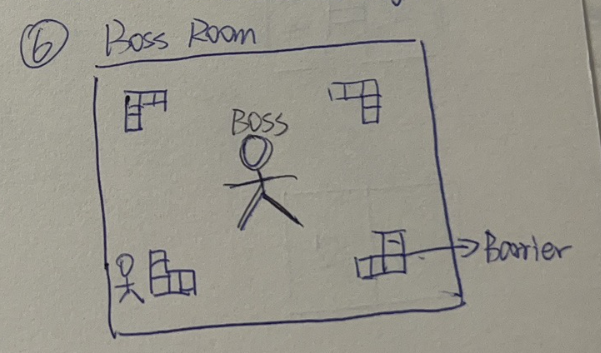 ⑥ Boss Room
BOSS
Barrier